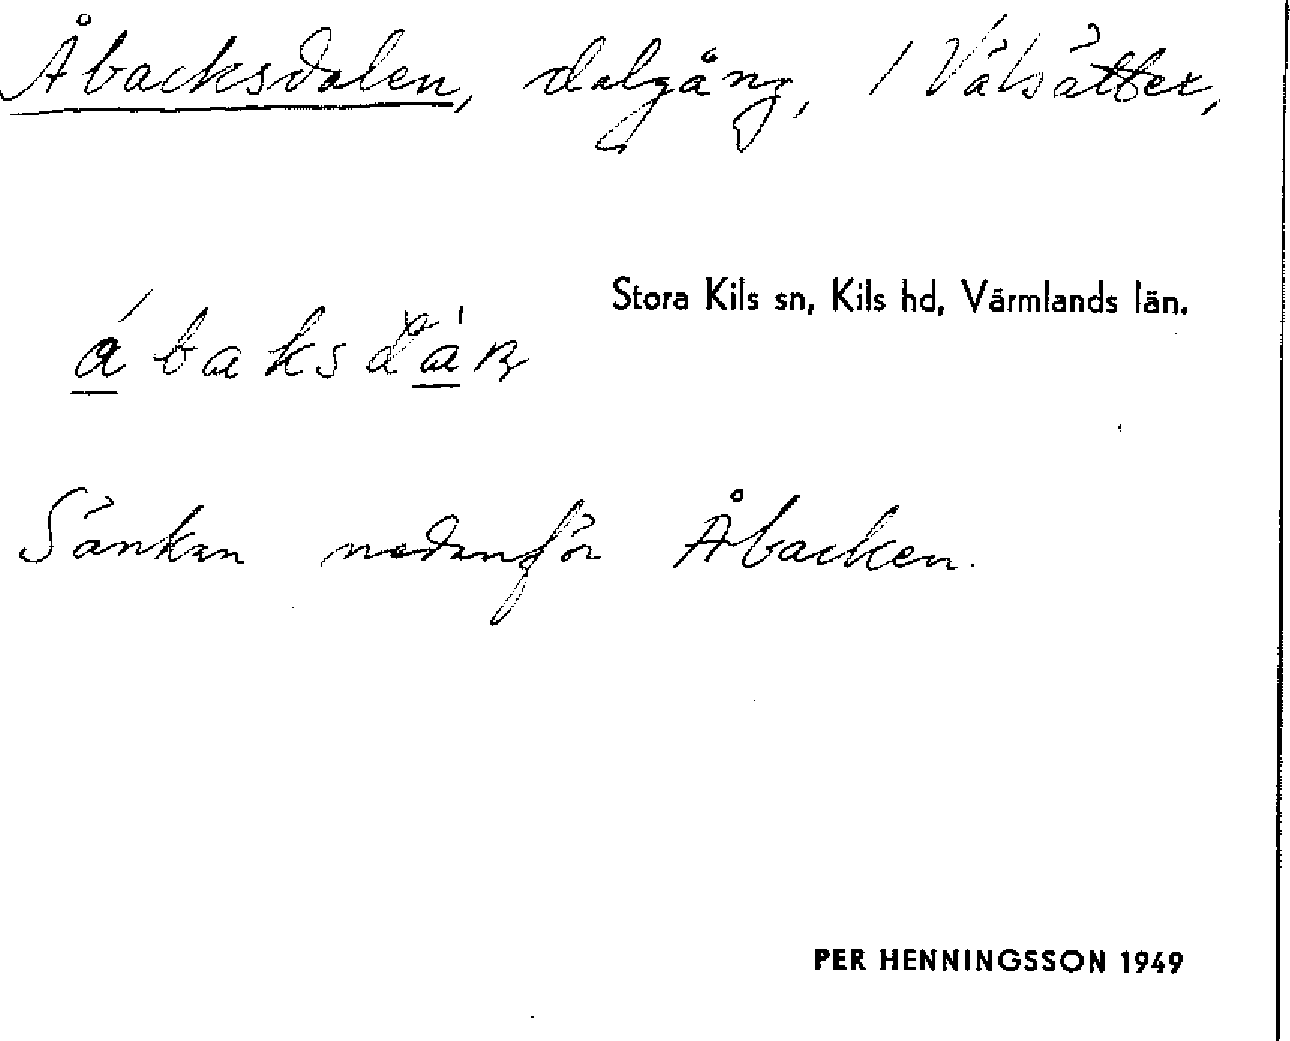 Åbacksdalen, dalgång, / Välsätter,
Stora Kils sn, Kils hd, Värmlands län.
Sänkan nedanför Åbacken.
PER HENNINGSSON 1949